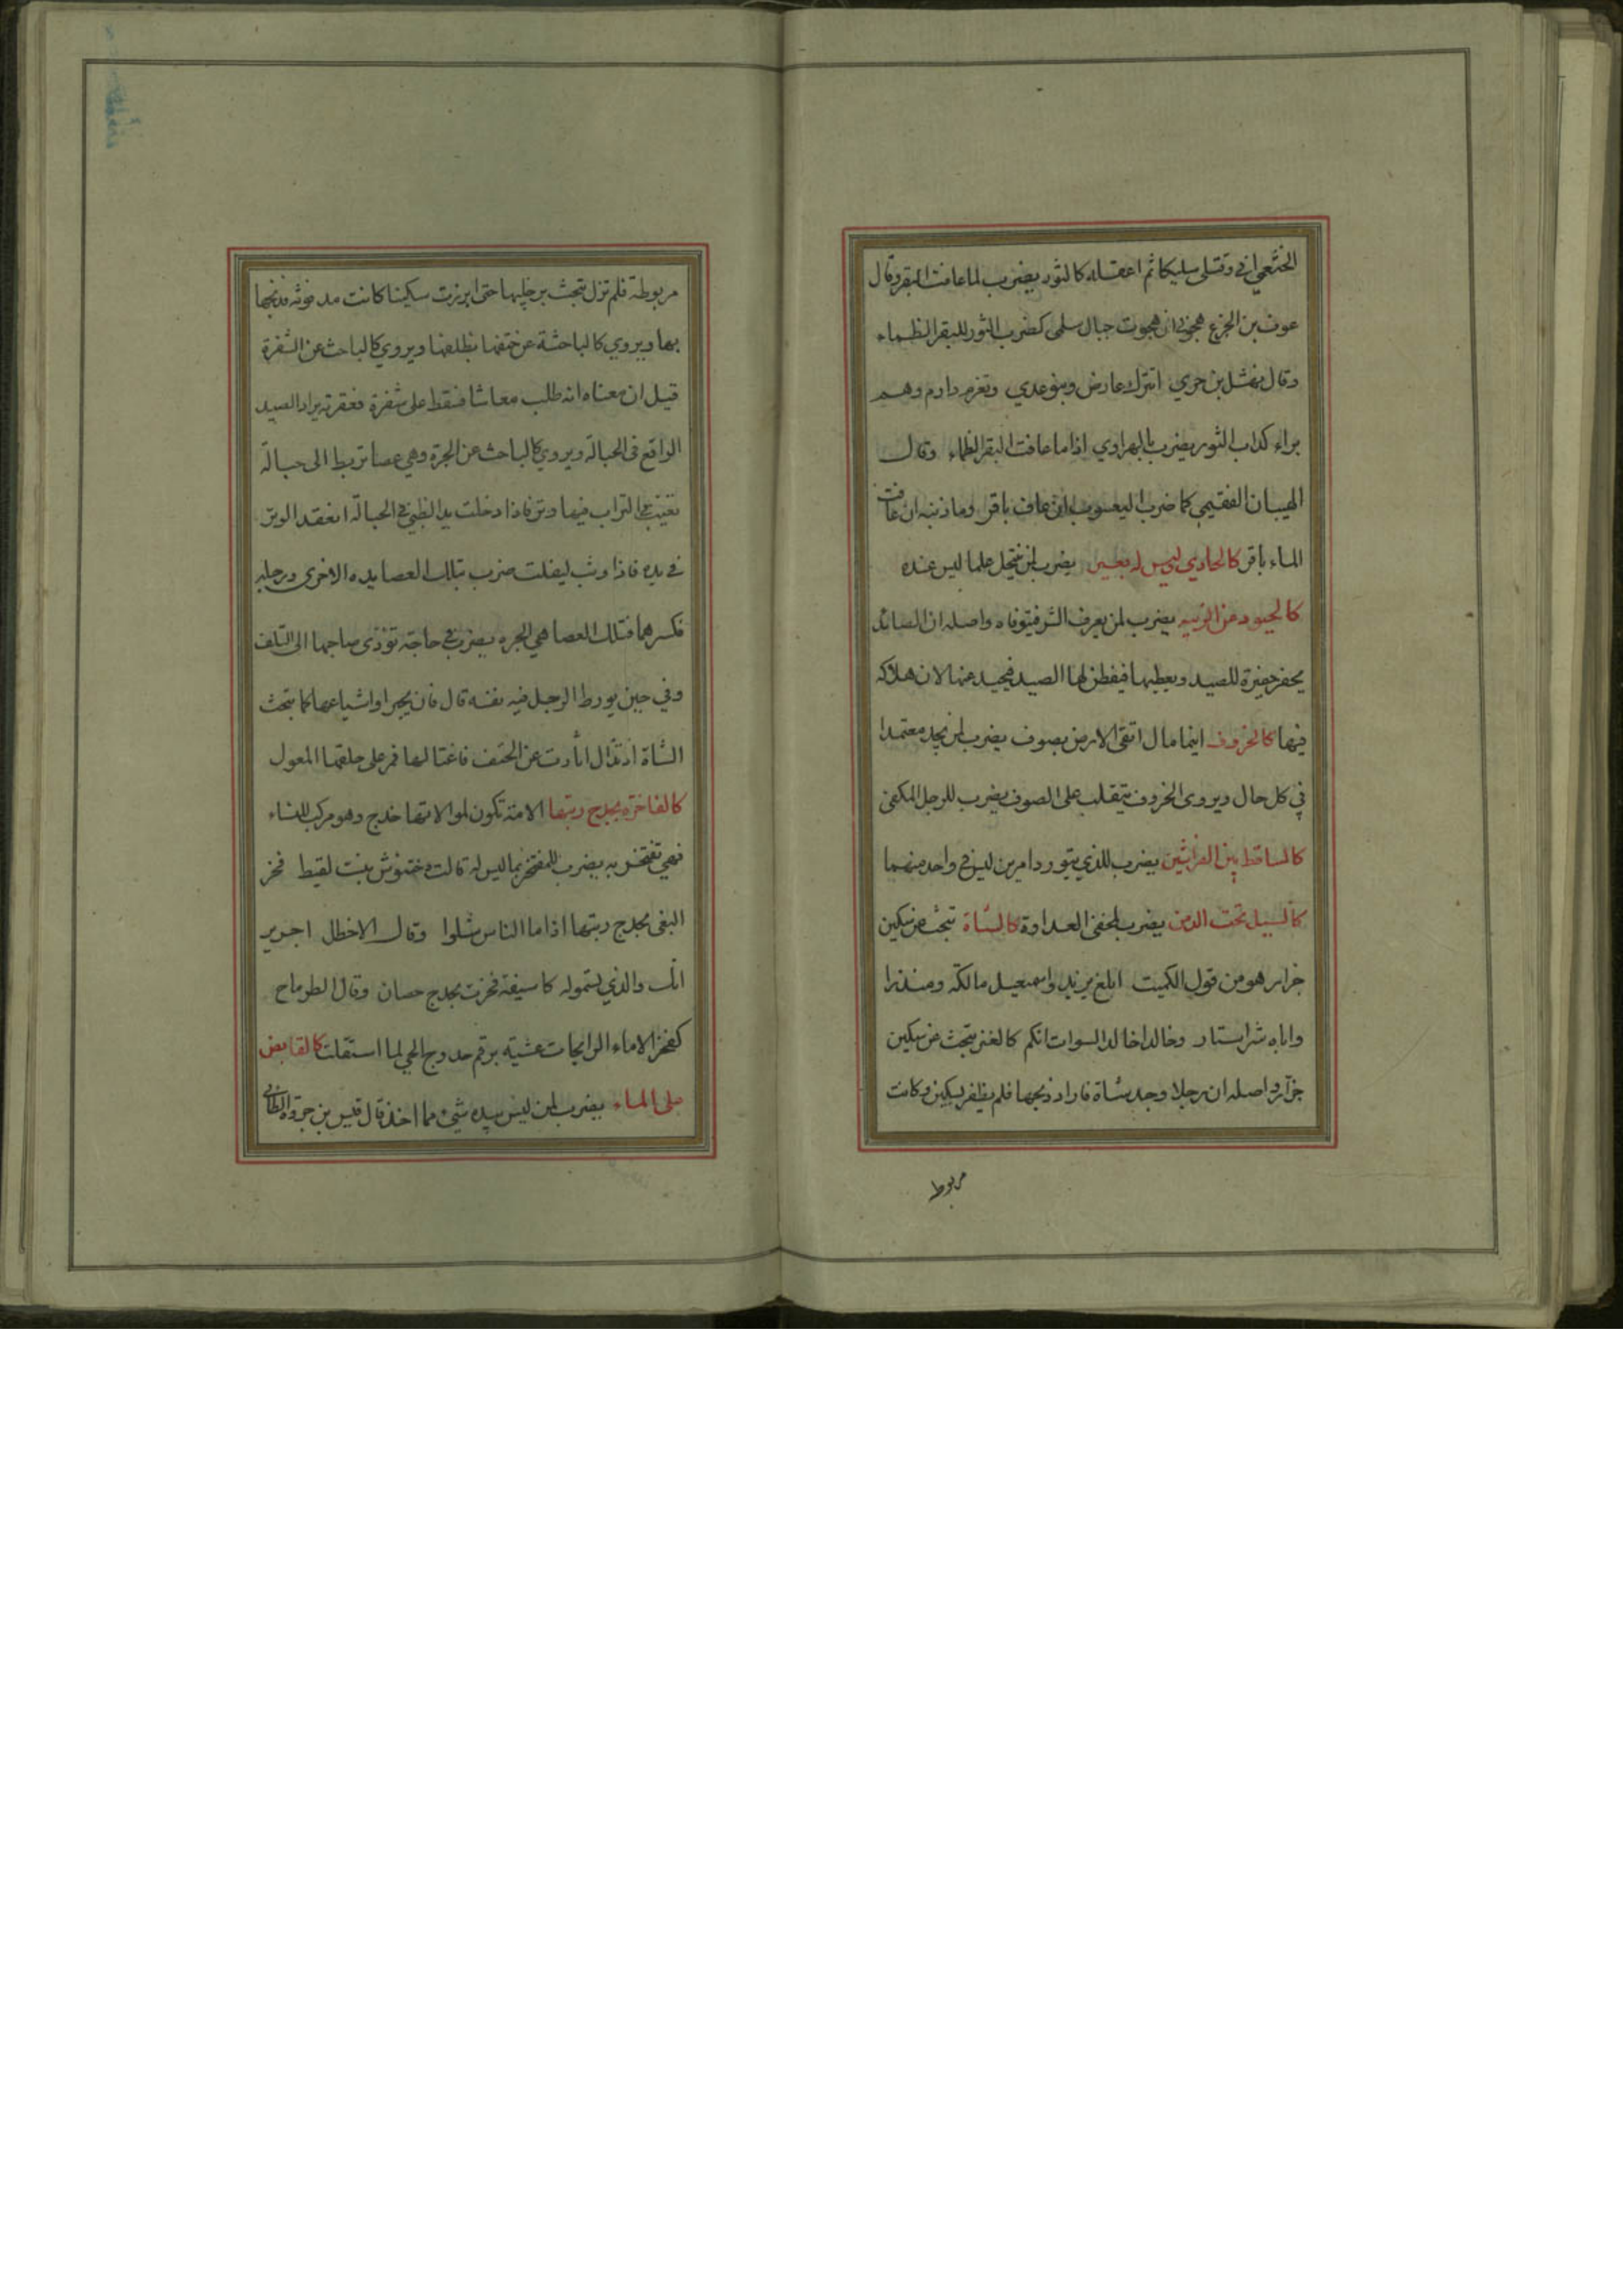 الخثعمي اني وقتلي سليكا ثم اعقله كالثور يضرب لما عافت البقر وقال
عوف بن الجزع هجوني ان هجوت جبال سلمى كضرب الثور للبقر الظماء
وقال نهشل بن حري اتترك عارض وبنو عدي وتغرم دارم وهم
براء كداب الثور يضرب بالهراوي اذا ما عافت البقر الظماء وقال
الهيبان الفقيمي كما ضرب اليعسوب ان عاف باقر وما ذنبه ان عافت
الماء باقر كالحادي ليس له بعير يضرب لمن ينتحل علما ليس عنده
كالحيود عن الزبيه يضرب لمن يعرف الشر فيتوقاه واصله ان الصائد
يحفر حفيرة للصيد ويغطيها فيفطن لها الصيد فيحيد عنها لان هلاكه
فيها كالخروف اينما مال اتقى الارض بصوف يضرب لمن يجد معتمدا
في كل حال ويروى الخروف يتقلب على الصوف يضرب للرجل المكفي
كالساقط بين الفراشين يضرب للذي يتورد امرين ليس في واحد منهما
كالسيل تحت الدمن يضرب لمخفي العداوة كالشاة تبحث عن سكين
جزار هو من قول الكميت ابلغ يزيد واسمعيل مالكه ومنذرا
واباه شر استار وخالدا خالد السوات انكم كالعنز تبحث عن سكين
جزار واصله ان رجلا وجد شاة فاراد ذبحها فلم يظفر بسكين وكانت
مربوطه
مربوطة فلم تزل تبحث برجليها حتى ابرزت سكينا كانت مدفونه فذبحها
بها ويروي كالباحثة عن حتفها بظلفها ويروي كالباحث عن الشفرة
قيل ان معناه انه طلب معاشا فسقط على شفرة فعقرته يراد الصيد
الواقع في الحبالة ويروي كالباحث عن الجرة وهي عصا تربط الى حبالة
تغيب في التراب فيها وتر فاذا دخلت يد الظبي في الحبالة انعقد الوتر
في يده فاذا وثب ليفلت ضرب بتلك العصا يده الاخرى ورجله
فكسرهما فتلك العصا هي الجره يضرب في حاجة تؤدي صاحبها الى التلف
وفي حين يورط الرجل فيه نفسه قال فان بجيرا واشياعها كما تبحث
الشاة اذ تدأل اثارت عن الحتف فاغتالها فمر على حلقها المعول
كالفاخرة بحدج ربتها الامة تكون لمولاتها حدج وهو مركب للنساء
فهي تفتخر به يضرب للمفتخر بما ليس له قالت دختنوش بنت لقيط فخر
البغي بحدج ربتها اذا ما الناس شلوا وقال الاخطل اجرير
انك والذي تسموله كاسيفة فخرت بحدج حصان وقال الطرماح
كفخر الاماء الرائحات عشية برقم حدوج الحي لما استقلت كالقابض
على الماء يضرب لمن ليس بيده شيء مما اخذ قال قيس بن جروة الطائي